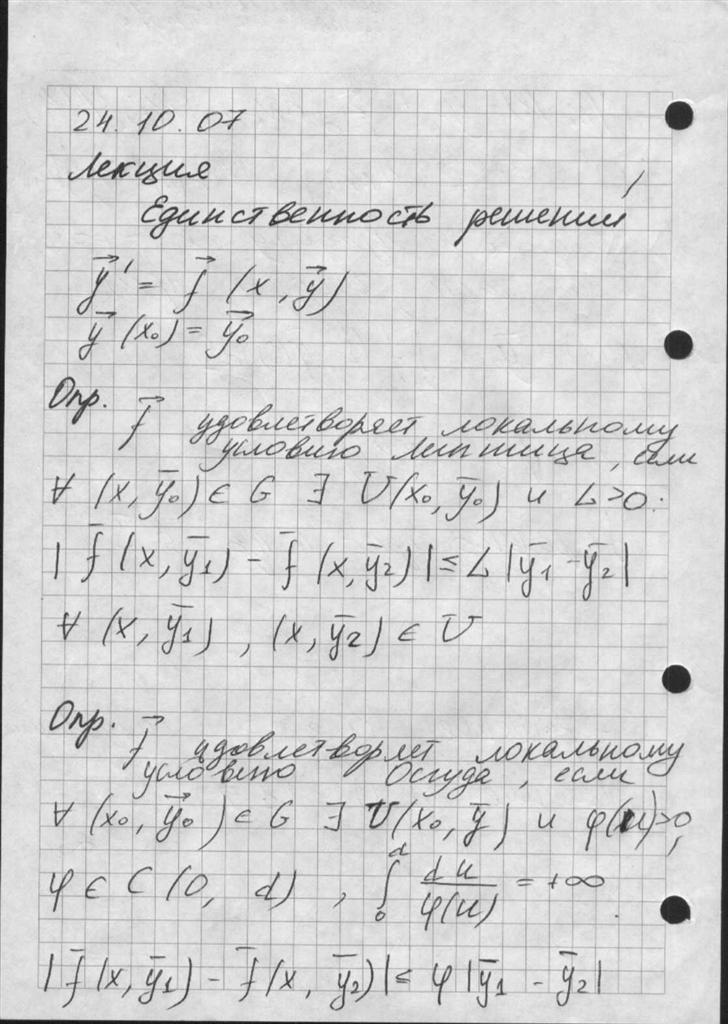 24.10.07
Лекция
Единственность решений
y⃗' = f⃗ (x, y⃗)
y⃗ (x₀) = y⃗₀
Опр.
f⃗ удовлетворяет локальному
условию Липшица, если
∀ (x, ȳ₀) ∈ G ∃ U(x₀, ȳ₀) и L>0:
| f̄ (x, ȳ₁) - f̄ (x, ȳ₂) | ≤ L |ȳ₁ - ȳ₂|
∀ (x, ȳ₁), (x, ȳ₂) ∈ U
Опр.
f⃗ удовлетворяет локальному
условию Осгуда, если
∀ (x₀, y⃗₀) ∈ G ∃ U(x₀, ȳ) и φ(u)>0,
φ ∈ C (0, d), ∫₀ᵈ du/φ(u) = +∞.
| f̄ (x, ȳ₁) - f̄ (x, ȳ₂) | ≤ φ |ȳ₁ - ȳ₂|